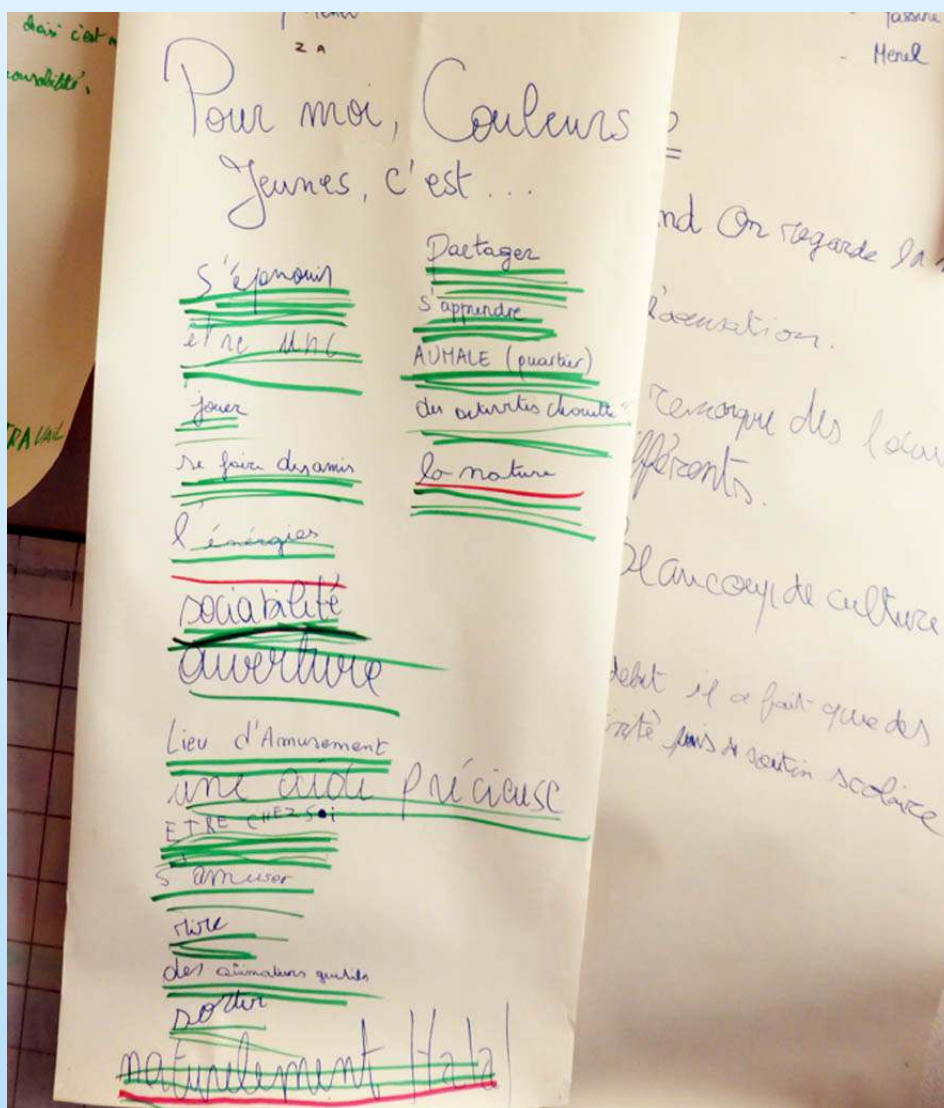 choisi c'est
Menel
2 A
Yassine
- Menel
Pour moi, Couleurs
Jeunes, c'est...
s'épanouir
être une
jouer
se faire des amis
l'énérgies
sociabilité
ouverture
Lieu d'Amusement
une aide précieuse
ETRE CHEZ SOI
s'amuser
rire
des animateurs gentils
sortir
naturelement Hala
Partager
s'apprendre
AUMALE (quartier)
des activités chouette
la nature
TRAVAIL
?
On regarde la
remarque des
fférents.
Beaucoup de culture
debut il a fait que des
puis de soutien scolaire